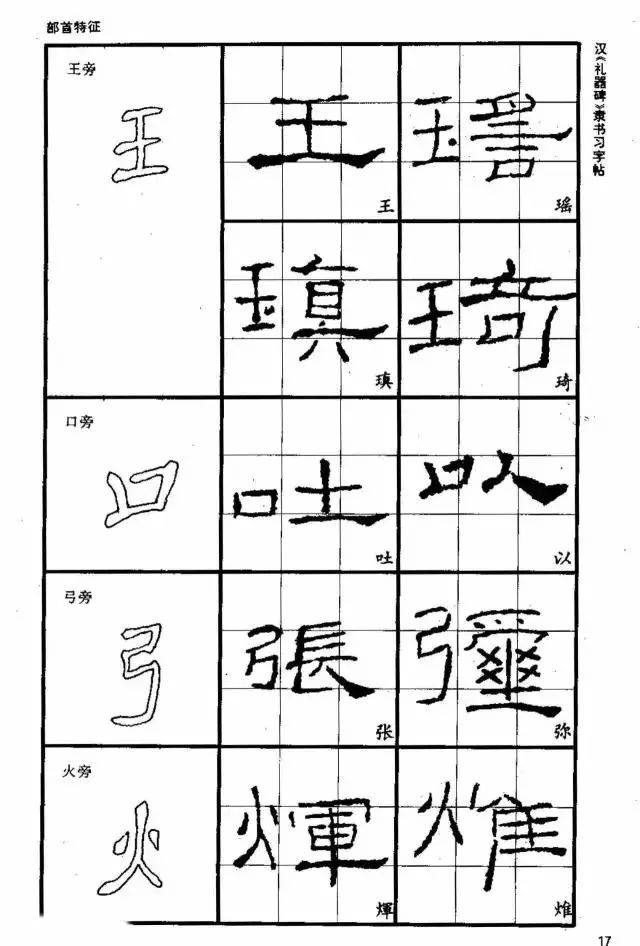 部首特征
汉《礼器碑》隶书习字帖
王旁
王
王 瑶
王 瑶
瑱 琦
瑱 琦
口旁
口
吐 以
吐 以
弓旁
弓
張 彌
张 弥
火旁
火
煇 㷟
煇
17